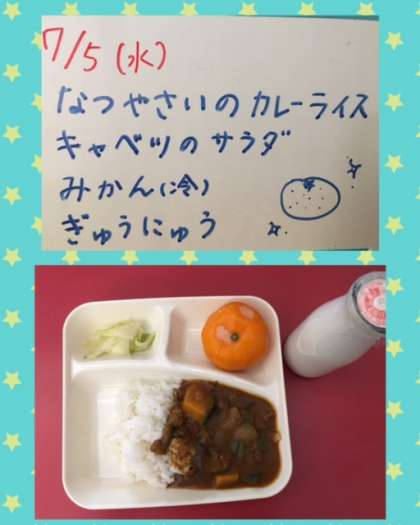 7/5(水)
なつやさいのカレーライス
キャベツのサラダ
みかん(冷)
ぎゅうにゅう